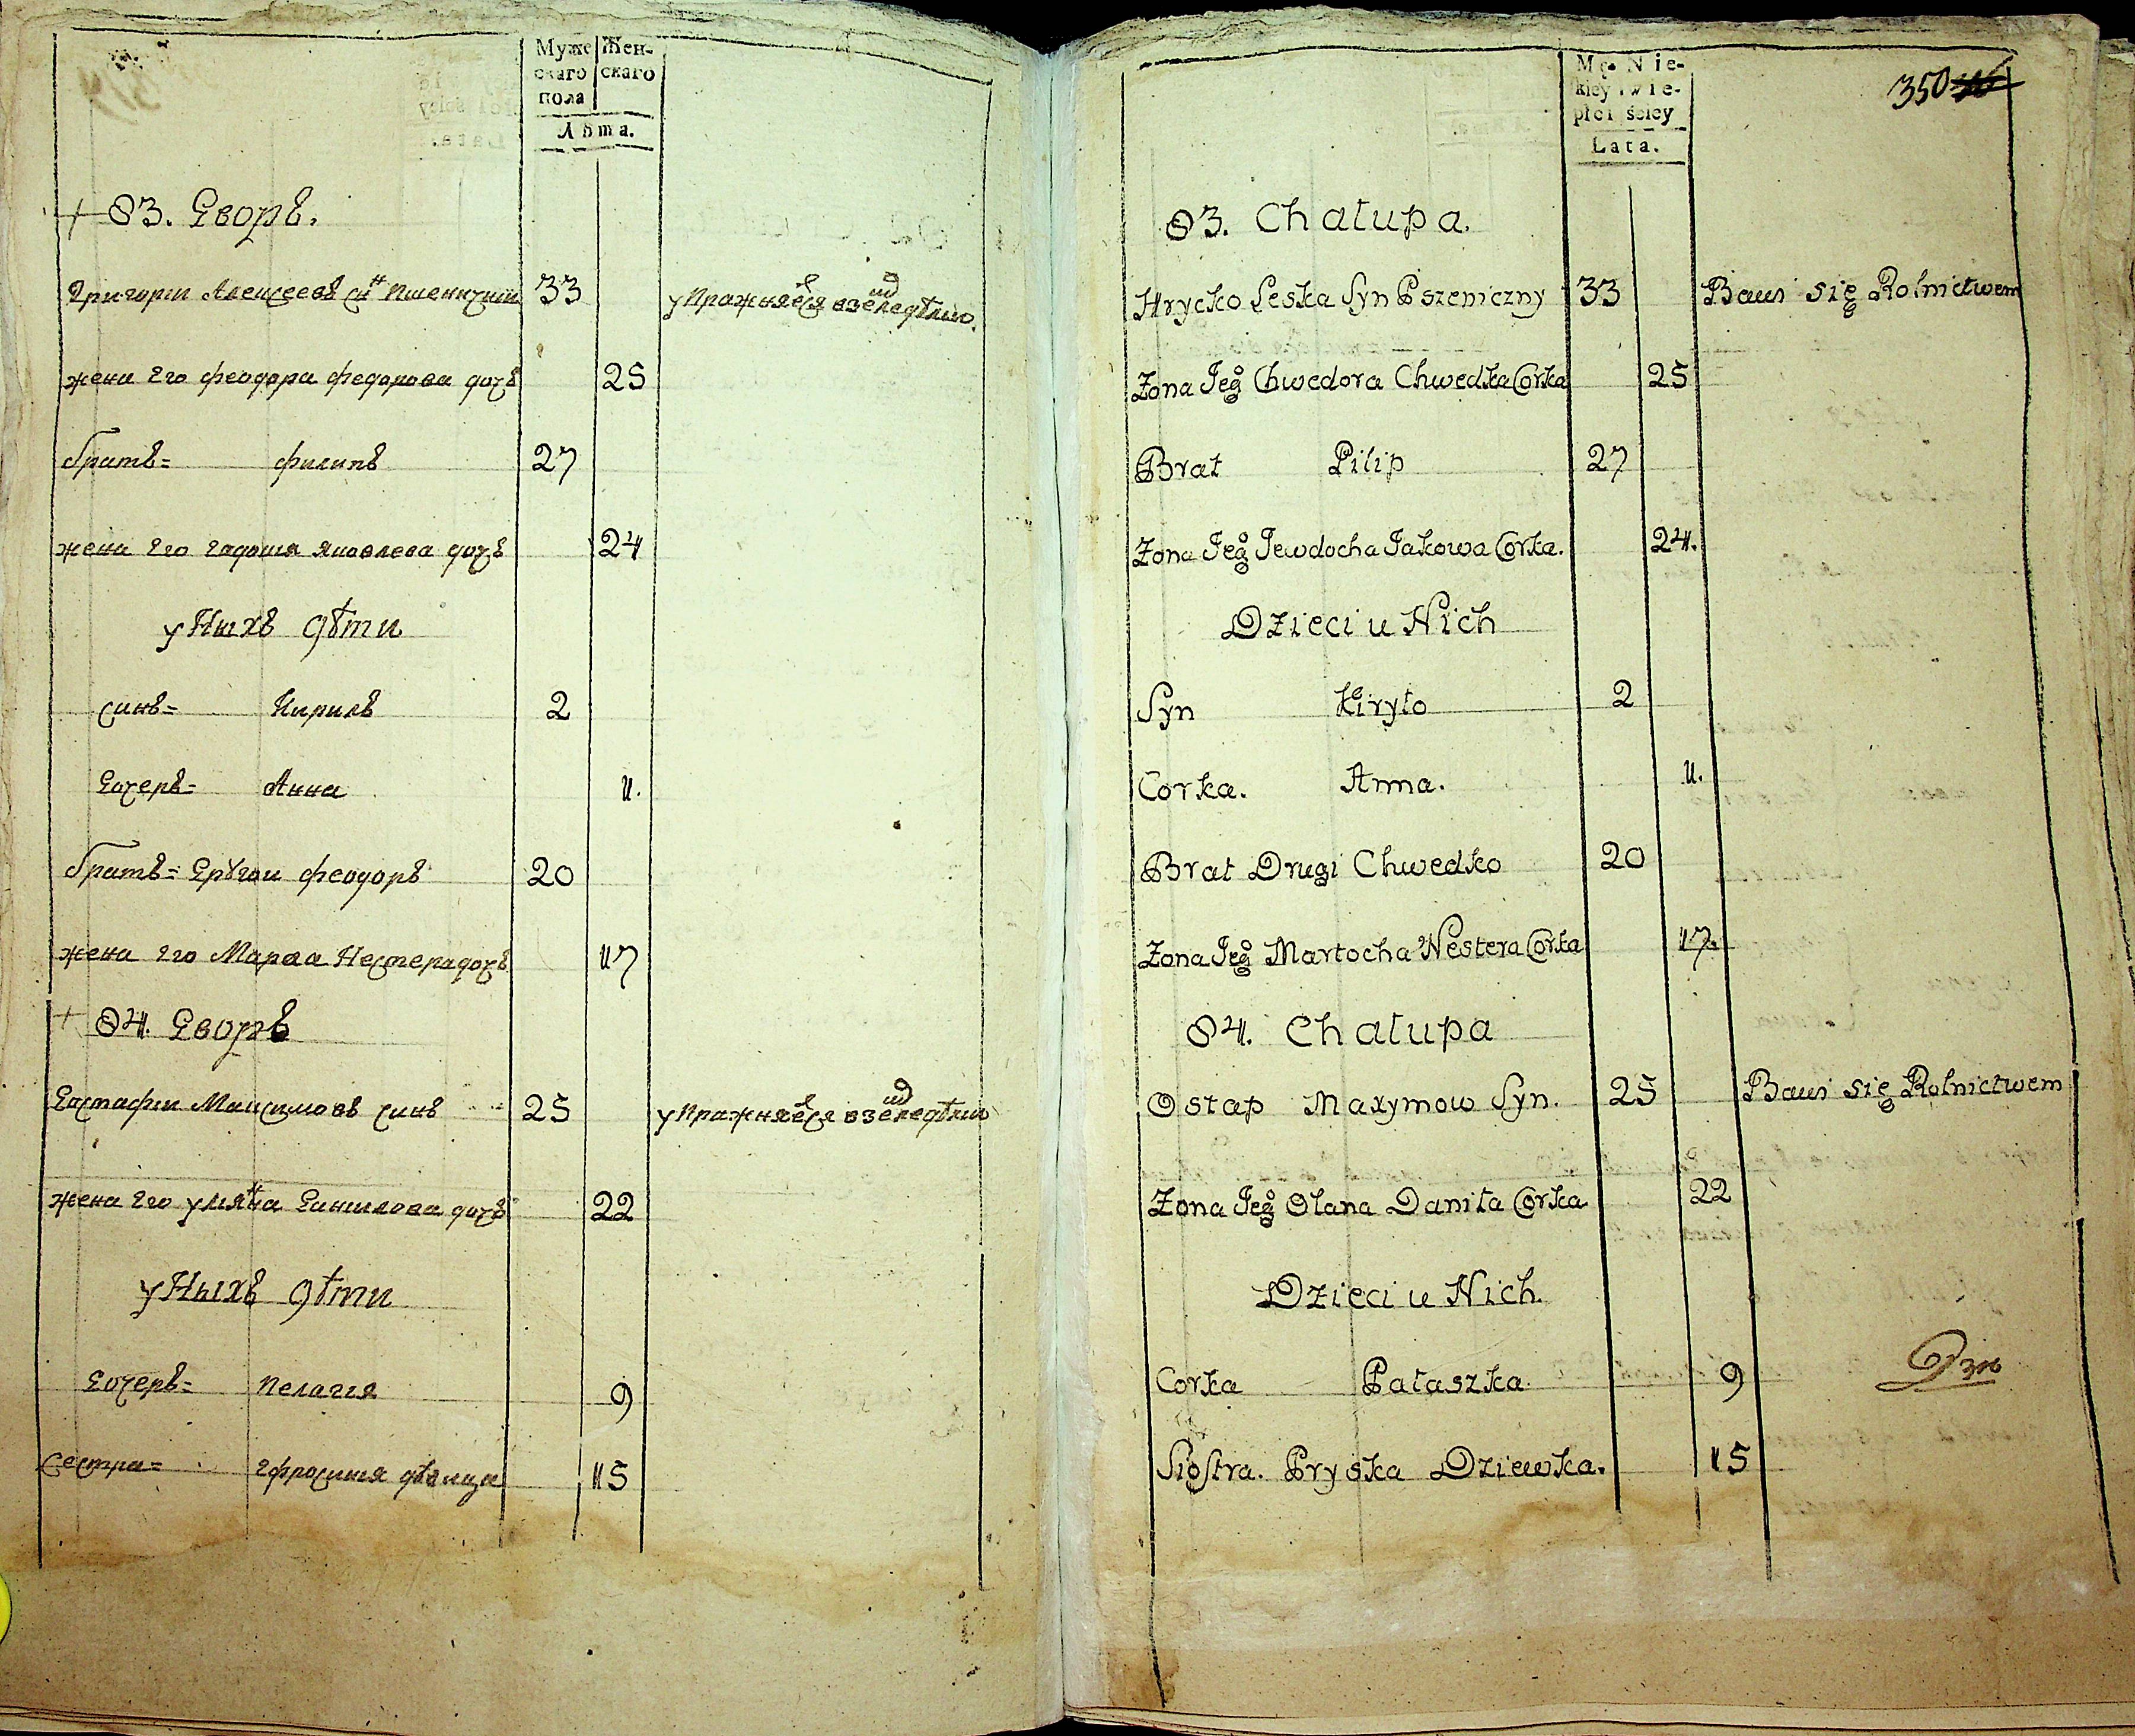 Муже Жен-
скаго скаго
пола
Лѣта.
83. Дворъ.
Григорїи Алексеевъ снъ Пшеничнїи 33 упражняется вземледѣлию.
жена Его феодора федорова дочъ 25
братъ= филипъ 27
жена Его Евдокия Яковлева дочъ 24
у Ныхъ дѣти
синъ= Кирилъ 2
Дочеръ= Анна 1.
братъ= Другои феодоръ 20
жена Его Марѳа Нестера дочъ 17
84. Дворъ
Евстафїи Максимовъ синъ 25 упражняется вземледѣлию
жена Его улияна Данилова дочъ 22
у Ныхъ дѣти
Дочеръ= Пелагея 9
Сестра= Ефросиния дѣвица 15
350
Mę- Nie-
kiey wie-
płci ściey
Lata.
83. Chałupa.
Hrycko Leska Syn Pszeniczny 33 Bawi się Rolnictwem
Zona Jego Chwedora Chwedka Corka 25
Brat Pilip 27
Zona Jego Jewdocha Jakowa Corka. 24.
Dzieci u Nich
Syn Kiryło 2
Corka. Anna. 1.
Brat Drugi Chwedko 20
Zona Jego Martocha Nestera Corka 17.
84. Chałupa
Ostap Maxymow Syn. 25 Bawi się Rolnictwem
Zona Jego Olana Daniła Corka 22
Dzieci u Nich.
Corka Pałaszka 9
Siostra. Pryska Dziewka. 15